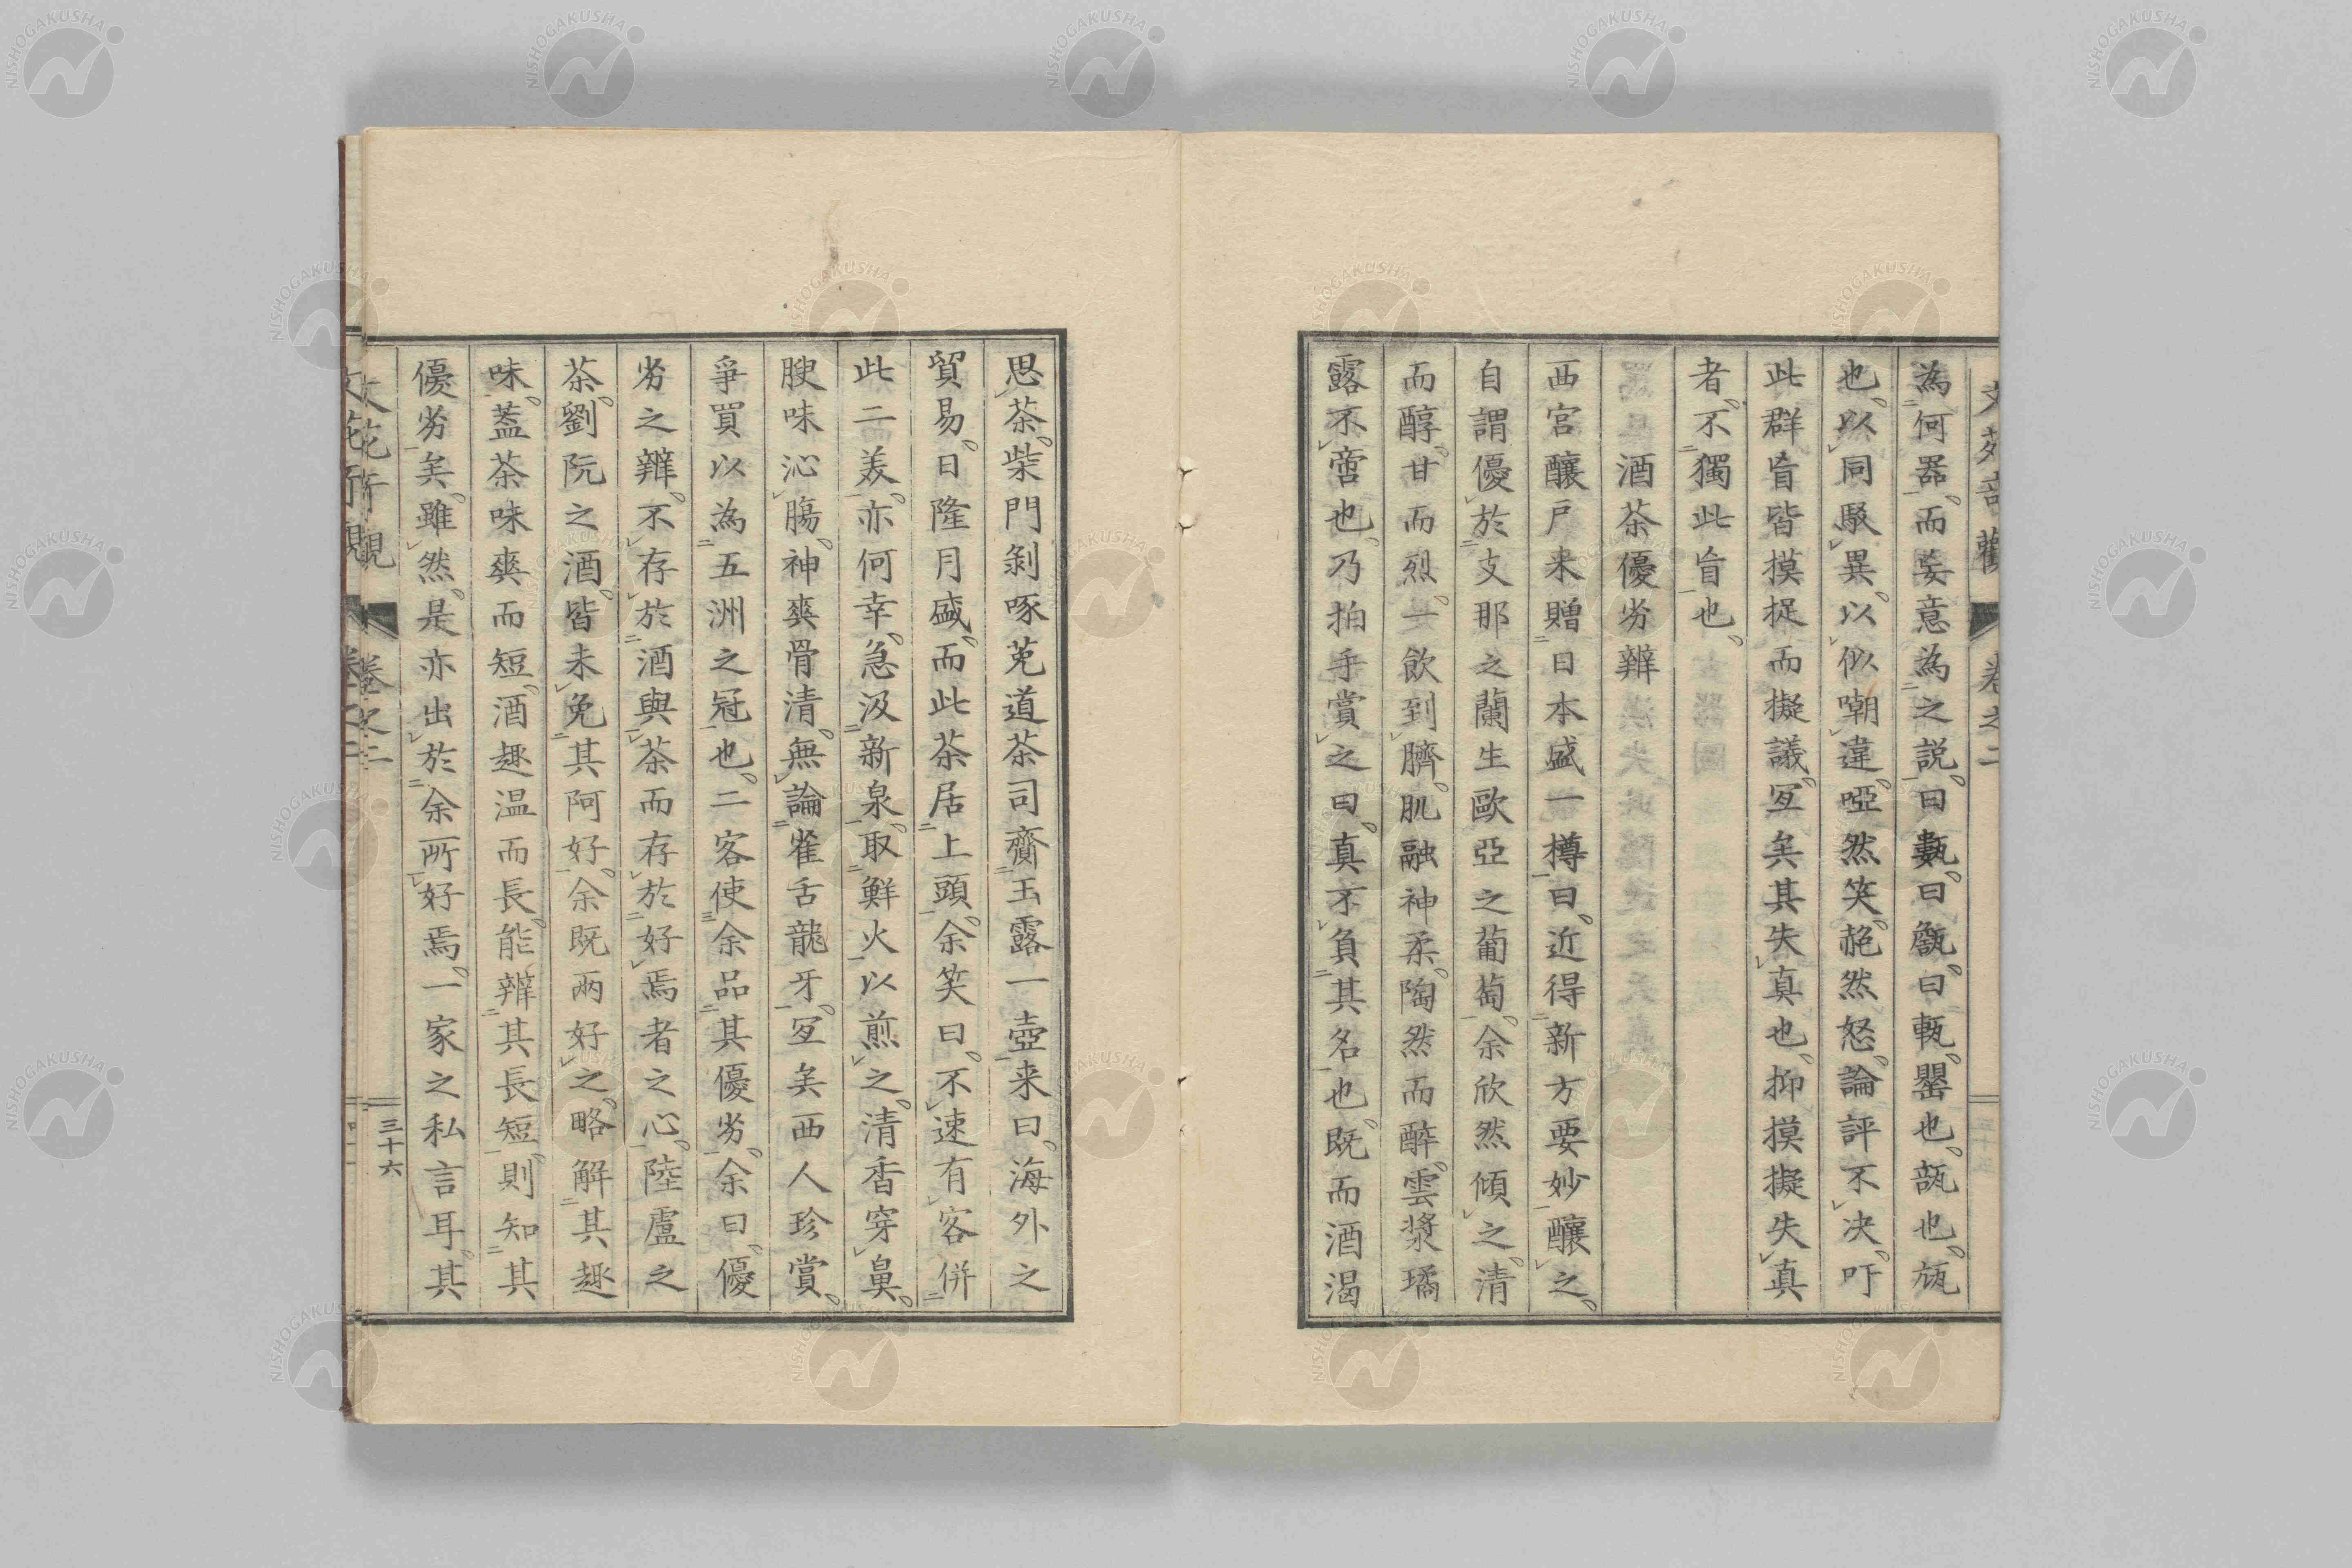 為何器而妄意為之説曰甊曰㼾曰甎罌也瓿也瓶
也以同駁異以似嘲違啞然笑艴然怒論評不决吁
此群盲皆摸捉而擬議冝矣其失真也抑摸擬失真
者不獨此盲也
酒茶優劣辨
西宮釀戸来贈日本盛一樽曰近得新方要妙釀之
自謂優於支那之蘭生歐亞之葡萄余欣然傾之清
而醇甘而烈一飲到臍肌融神柔陶然而醉雲漿璚
露不啻也乃拍手賞之曰真不負其名也既而酒渴
思茶柴門剝啄莵道茶司齎玉露一壺来曰海外之
貿易日隆月盛而此茶居上頭余笑曰不速有客併
此二美亦何幸急汲新泉取鮮火以煎之清香穿鼻
腴味沁膓神爽骨清無論雀舌龍牙冝矣西人珍賞
爭買以為五洲之冠也二客使余品其優劣余曰優
劣之辨不存於酒與茶而存於好焉者之心陸盧之
茶劉阮之酒皆未免其阿好余既兩好之略解其趣
味蓋茶味爽而短酒趣温而長能辨其長短則知其
優劣矣雖然是亦出於余所好焉一家之私言耳其
卷之二
三十六